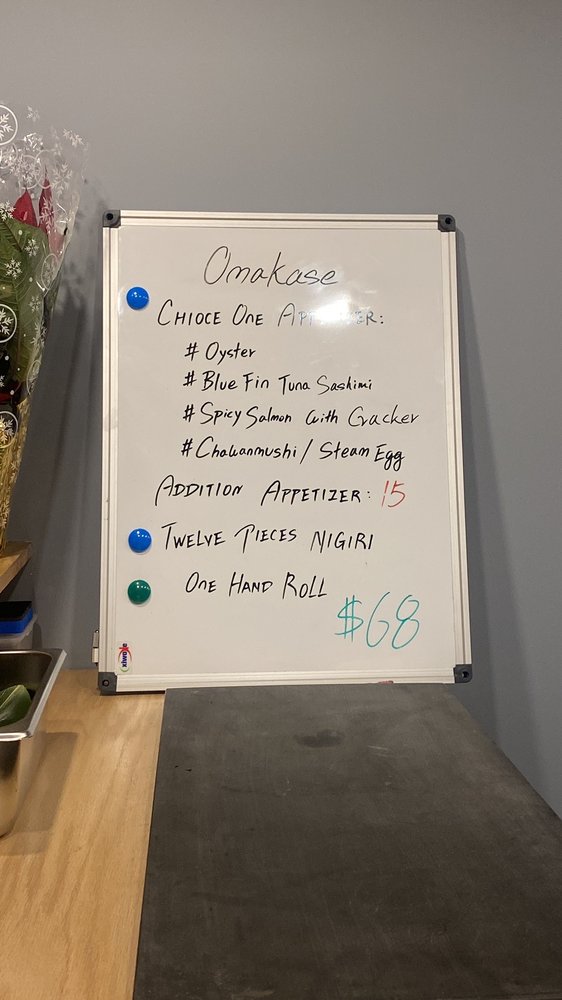 Omakase
CHIOCE ONE APPETIZER:
# Oyster
# Blue Fin Tuna Sashimi
# Spicy Salmon with Cracker
# Chawanmushi / Steam Egg
ADDITION APPETIZER: 15
TWELVE PIECES NIGIRI
ONE HAND ROLL
$68